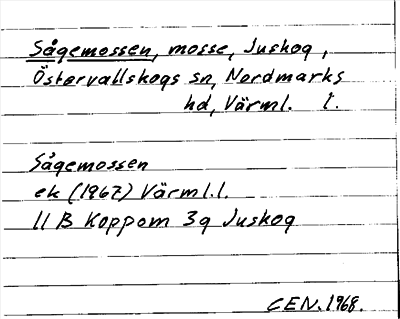 Sågemossen, mosse, Juskog,
Östervallskogs sn, Nordmarks
hd, Värml. l.
Sågemossen
ek (1967) Värml.l.
11 B Koppom 3g Juskog
CEN. 1968.